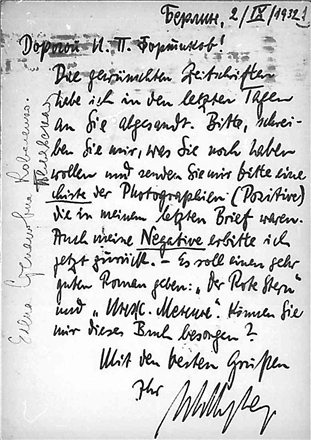 Берлин, 2/IX/1932
Дорогой И. П. Фортиков!
Die gewünschten Zeitschriften
habe ich in den letzten Tagen
an Sie abgesandt. Bitte, schrei-
ben Sie mir, was Sie noch haben
wollen und senden Sie mir bitte eine
Liste der Photographien (Positive)
die in meinem letzten Brief waren.
Auch meine Negative erbitte ich
jetzt zurück. – Es soll einen sehr
guten Roman geben: „Der Rote Stern"
und „Инж. Менни". Können Sie
mir dieses Buch besorgen?
Mit den besten Grüßen
Ihr
Елена Степановна